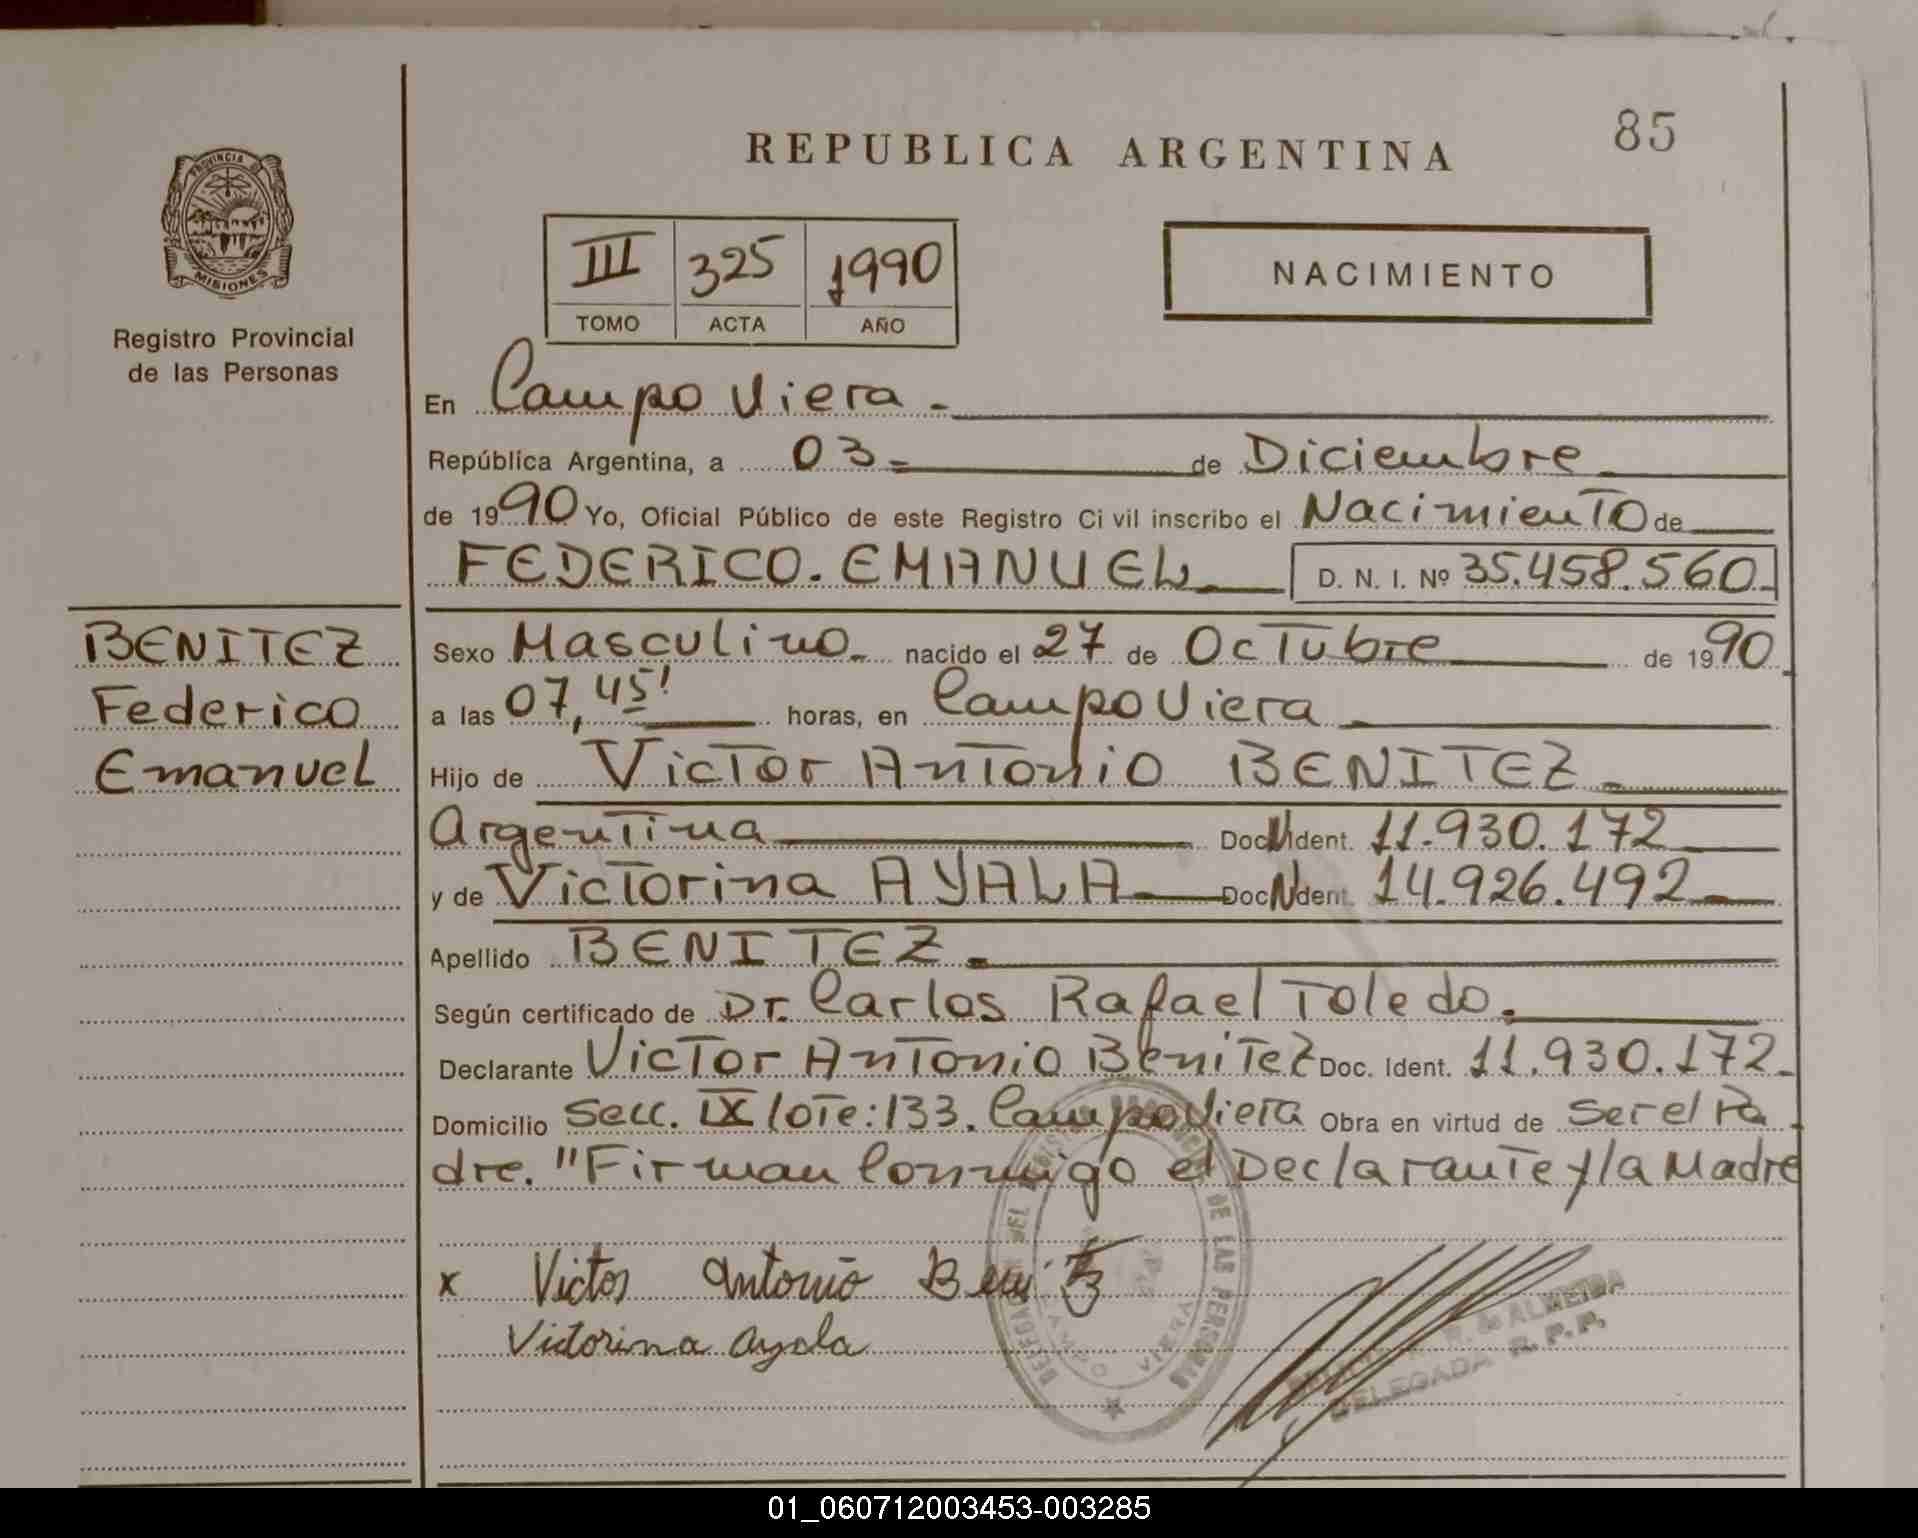 85
REPUBLICA ARGENTINA
PROVINCIA D
MISIONES
Registro Provincial
de las Personas
III 325 1990
TOMO ACTA AÑO
NACIMIENTO
En Campo Viera.
República Argentina, a 03 de Diciembre
de 1990 Yo, Oficial Público de este Registro Ci vil inscribo el Nacimiento de
FEDERICO. EMANUEL D. N. I. Nº 35.458.560
BENITEZ
Federico
Emanuel
Sexo Masculino nacido el 27 de Octubre de 1990
a las 07,45' horas, en Campo Viera
Hijo de Victor Antonio BENITEZ
Argentina Doc. Ident. 11.930.172
y de Victorina AYALA Doc. Ident. 14.926.492
Apellido BENITEZ
Según certificado de Dr. Carlos Rafael Toledo.
Declarante Victor Antonio Benitez Doc. Ident. 11.930.172
Domicilio Secc. IX lote: 133. Campo Viera Obra en virtud de ser el Pa
dre. "Firman Conmigo el Declarante y la Madre
x Victor Antonio Benitez
Victorina Ayala
DE LAS PERSONAS
CAMPO VIERA
R. de ALMEIDA
DELEGADA R. P. P.
01_060712003453-003285